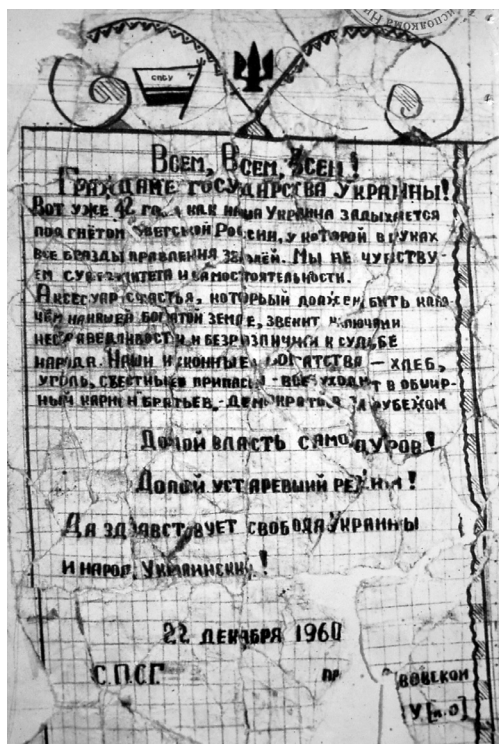 исполкома
СПБУ
Всем, Всем, Всем!
Граждане государства Украины!
Вот уже 42 года как наша Украина задыхается
под гнётом Советской России, у которой в руках
все бразды правления землёй. Мы не чувству-
ем суверинтета и самостоятельности.
Аксесуар счастья, который должен бить клю-
чём на нашей богатой земле, звенит ключами
несправедливости и безразличия к судьбе
народа. Наши исконные богатства – хлеб,
уголь, съестные припасы - все уходит в обшир-
ный карман братьев,-демократов за рубежом
Долой власть самодуров!
Долой устаревший режим!
Да здравствует свобода Украины
и народ Украинский!
22 декабря 1960
С.П.С.Г.